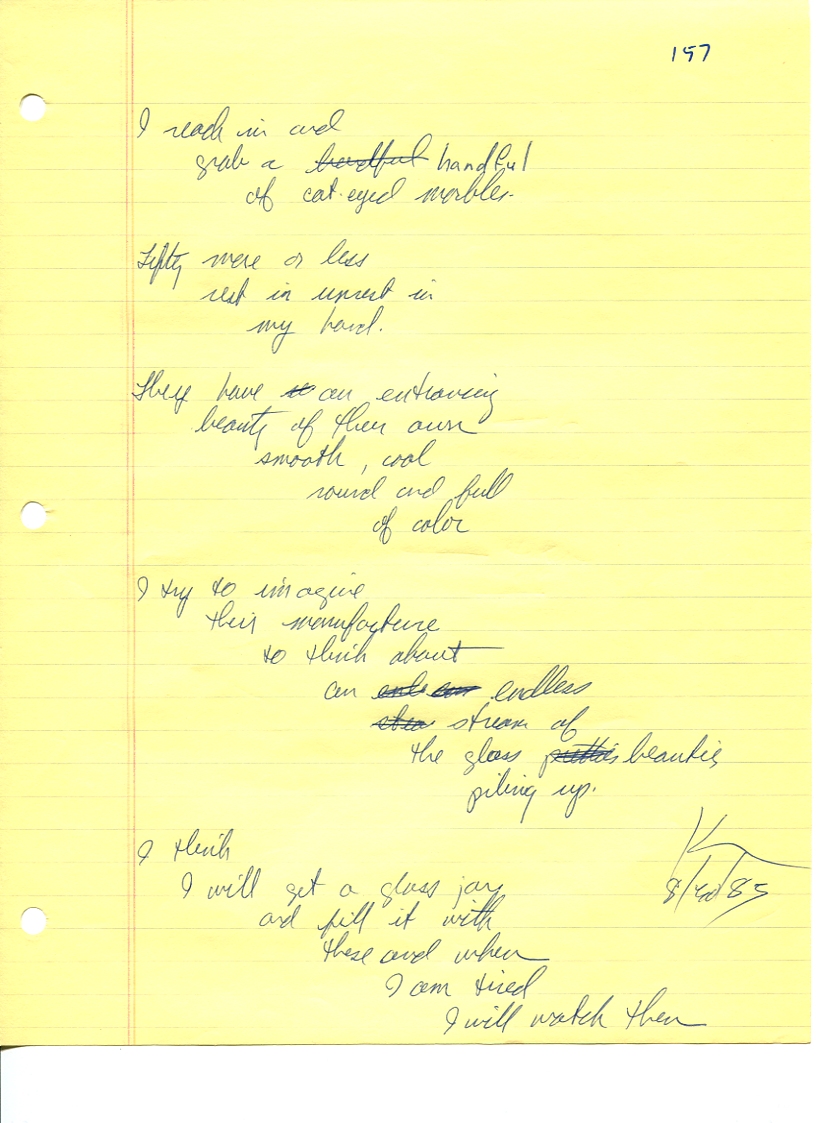 157
I reach in and
grab a handful handful
of cat-eyed marbles.
Fifty more or less
rest in unrest in
my hand.
They have an entrancing
beauty of their own
smooth, cool
round and full
of color
I try to imagine
their manufacture
to think about
an endless
stream of
the glass beauties
piling up.
I think
I will get a glass jar
and fill it with
these and when
I am tired
I will watch them